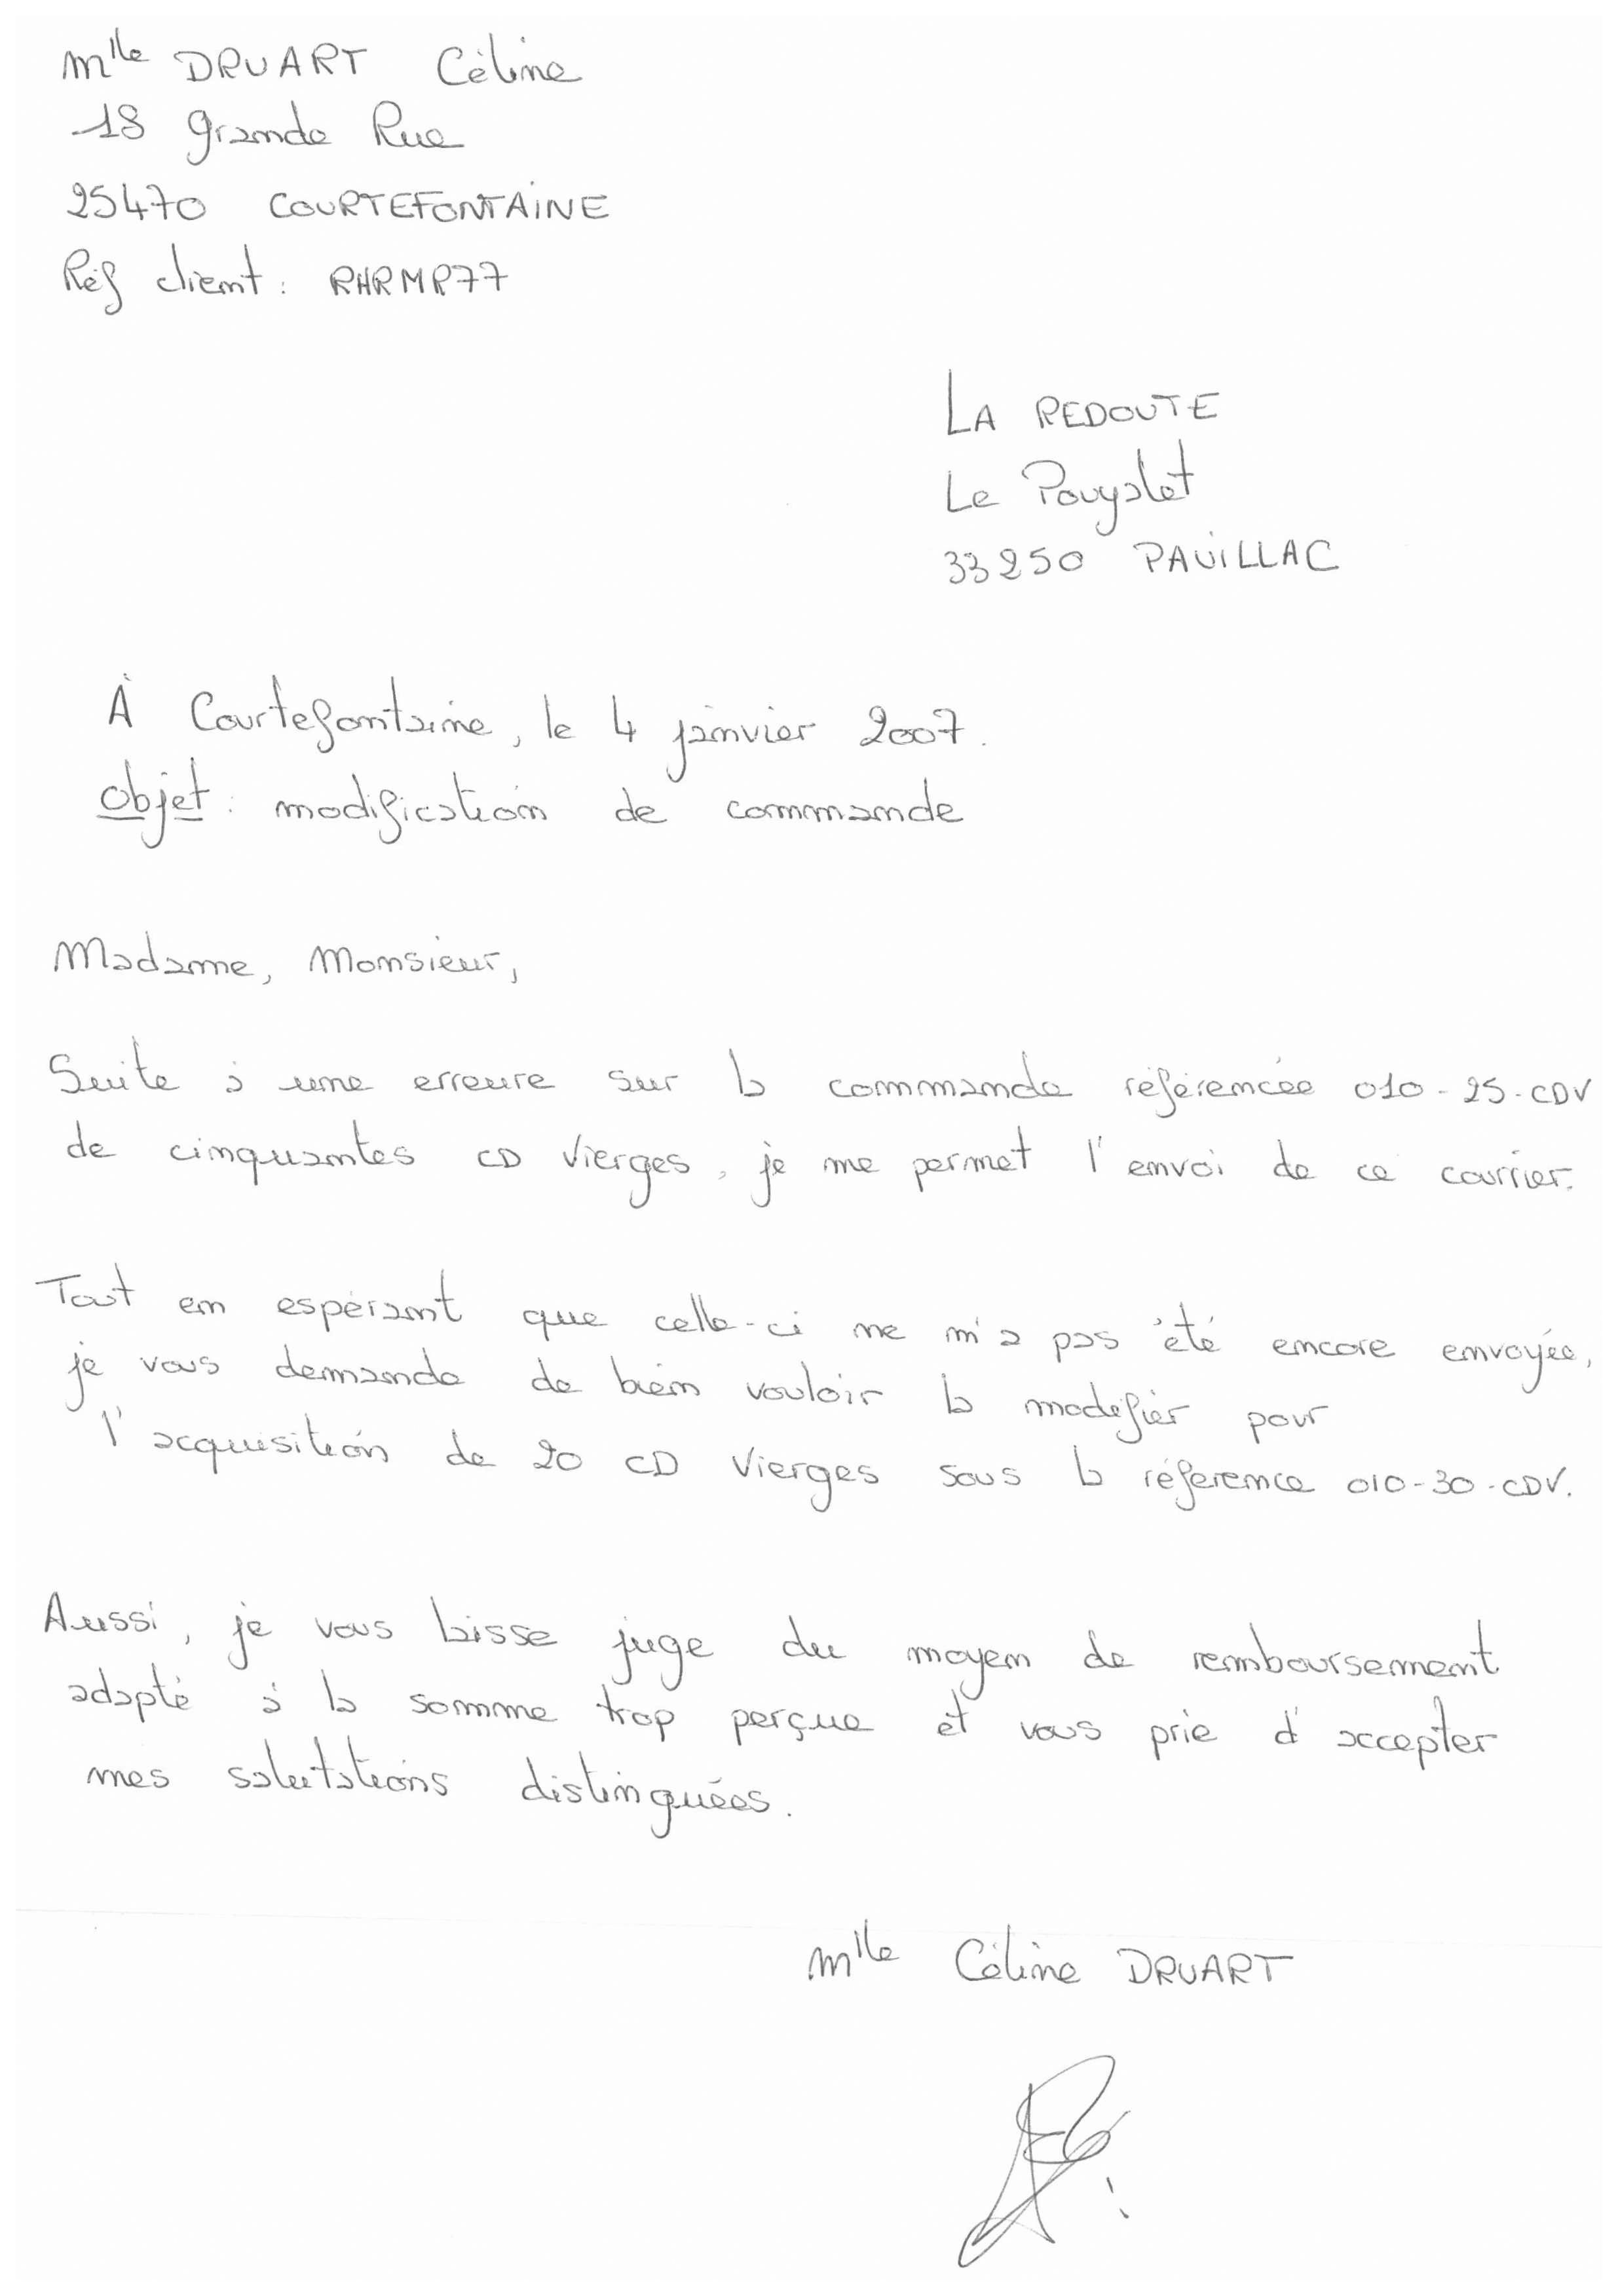 Mlle DRUART Céline
18 grande Rue
25470 COURTEFONTAINE
Réf client : RHRMR77
LA REDOUTE
Le Pouyalet
33250 PAUILLAC
À Courtefontaine, le 4 janvier 2007.
Objet : modification de commande
Madame, Monsieur,
Suite à une erreure sur la commande référencée 010-25-CDV
de cinquantes CD Vierges, je me permet l'envoi de ce courrier.
Tout en espérant que celle-ci ne m'a pas été encore envoyée,
je vous demande de bien vouloir la modifier pour
l'acquisition de 20 CD Vierges sous la référence 010-30-CDV.
Aussi, je vous laisse juge du moyen de remboursement
adapté à la somme trop perçue et vous prie d'accepter
mes salutations distinguées.
Mlle Céline DRUART